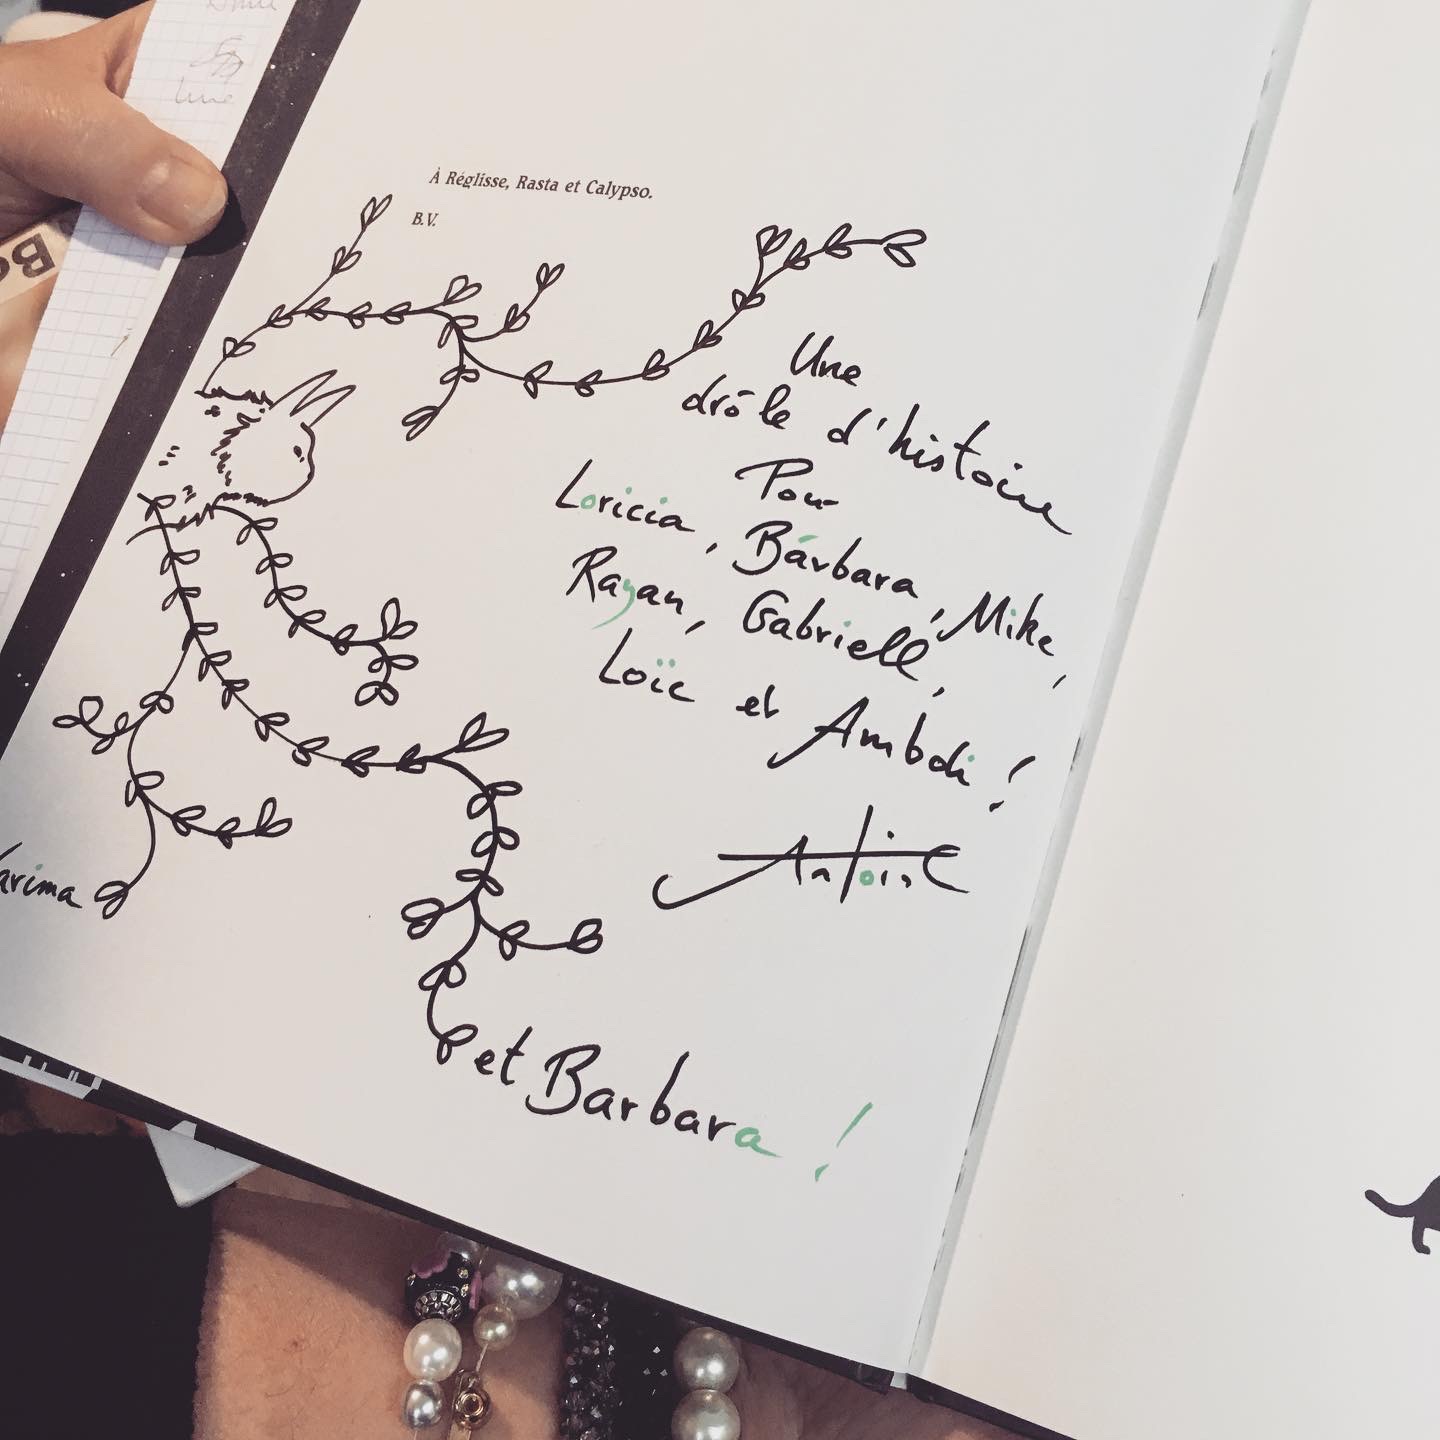 À Réglisse, Rasta et Calypso.
B.V.
Une
drôle d'histoire
Pour
Loricia, Bárbara, Mike,
Rayan, Gabriell,
Loïc et Ambdi !
Antoine
et Barbara !